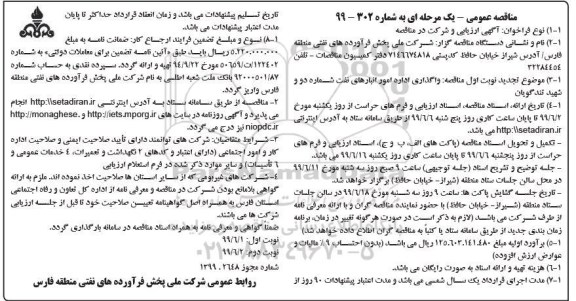 مناقصه عمومی – یک مرحله ای به شماره ۳۰۲ – ۹۹
۱-۱) نوع فراخوان: آگهی ارزیابی و شرکت در مناقصه
۲-۱) نام و نشانی دستگاه مناقصه گزار: شرکت ملی پخش فرآورده های نفتی منطقه
فارس/ آدرس شیراز خیابان حافظ کدپستی ۷۱۴۶۶۷۴۸۱۸ دفتر کمیسیون مناقصات – تلفن
۳۲۲۸۴۴۵۴
۳-۱) موضوع تجدید نوبت اول مناقصه: واگذاری اداره امور انبارهای نفت شماره دو و
شهید کندگویان
۴-۱) تاریخ ارائه، اسناد مناقصه، اسناد ارزیابی و فرم های حراست از روز یکشنبه مورخ
۹۹/۶/۲ تا پایان ساعت کاری روز پنج شنبه ۹۹/۶/۶ از طریق سامانه ستاد به آدرس اینترنتی
http:\\setadiran.ir می باشد.
– تکمیل و تحویل اسناد مناقصه (پاکت های الف، ب و ج)، اسناد ارزیابی و فرم های
حراست از روز پنجشنبه ۹۹/۶/۶ تا پایان ساعت کاری روز یکشنبه ۹۹/۶/۱۶ می باشد.
– جلسه توضیح و تشریح اسناد (جلسه توجیهی) ساعت ۹ صبح روز سه شنبه مورخ ۹۹/۶/۱۱
در محل سالن جلسات ستاد منطقه (شیراز- خیابان حافظ) برگزار خواهد شد.
– تاریخ جلسه گشایش پاکت ها: ساعت ۹ روز سه شنبه مورخ ۹۹/۶/۱۸ در سالن جلسات
ستاد منطقه (شیراز- خیابان حافظ) با حضور نمایندگان مناقصه گران و با ارائه معرفی نامه
از طرف شرکت می باشد. (لازم به ذکر است در صورت هرگونه تغییر در زمان، برنامه
زمان بندی جدید از طریق سامانه ستاد یا کتباً به مناقصه گران اطلاع داده خواهد شد)
۵-۱) برآورد اولیه مبلغ ۱۲۵.۶۰۳.۱۴۱.۴۸۰ ریال می باشد. (بدون احتساب ۹٪ مالیات و
عوارض ارزش افزوده)
۶-۱) هزینه تهیه و ارائه اسناد به صورت رایگان می باشد.
۷-۱) مدت اجرای قرارداد یک سال شمسی می باشد و مدت اعتبار پیشنهادات ۹۰ روز از
تاریخ تسلیم پیشنهادات می باشد و زمان انعقاد قرارداد حداکثر تا پایان
مدت اعتبار پیشنهادات می باشد.
۸-۱) نوع و مبلغ تضمین فرایند ارجاع کار: ضمانت نامه به مبلغ
۵.۲۲۰.۰۰۰.۰۰۰ ریال باید طبق «آئین نامه تضمین برای معاملات دولتی» به شماره
۱۲۳۴۰۲/ت۵۰۶۵۹ه مورخ ۹۴/۹/۲۲ تهیه و ارائه گردد. سپرده نقدی به حساب شماره
۹۲۰۰۰۵۱۸۷ بانک ملت شعبه اطلسی به نام شرکت ملی پخش فرآورده های نفتی منطقه
فارس واریز گردد.
۲- مناقصه از طریق سامانه ستاد به آدرس اینترنتی http:\\setadiran.ir انجام
می پذیرد و آگهی روزنامه در سایت های http://iets.mporg.ir و http://monaghese.
niopdc.ir نیز درج می گردد.
۳- شرایط متقاضیان: شرکت های توانمند دارای تأیید صلاحیت ایمنی و صلاحیت اداره
کار و امور اجتماعی (دارای اعتبار و کدهای ۲ نگهداشت و تعمیرات، ۴ خدمات عمومی و
۶ تأسیسات) و سایر موارد ذکر شده در فرم استعلام ارزیابی
۴- شرکت های غیربومی که از سایر استان ها صلاحیت اخذ نموده اند، ملزم به ارائه
گواهی بلامانع بودن شرکت در مناقصه و معرفی نامه از اداره کل تعاون و رفاه اجتماعی
استان فارس به همراه اصل گواهینامه تعیین صلاحیت خود تا قبل از جلسه ارزیابی
شرکت ها می باشد.
ضمنا گواهی و معرفی نامه به همراه اسناد مناقصه در سامانه بارگذاری گردد.
نوبت اول: ۹۹/۶/۱
نوبت دوم: ۹۹/۶/۲
شماره مجوز ۱۳۹۹.۲۶۴۸
روابط عمومی شرکت ملی پخش فرآورده های نفتی منطقه فارس